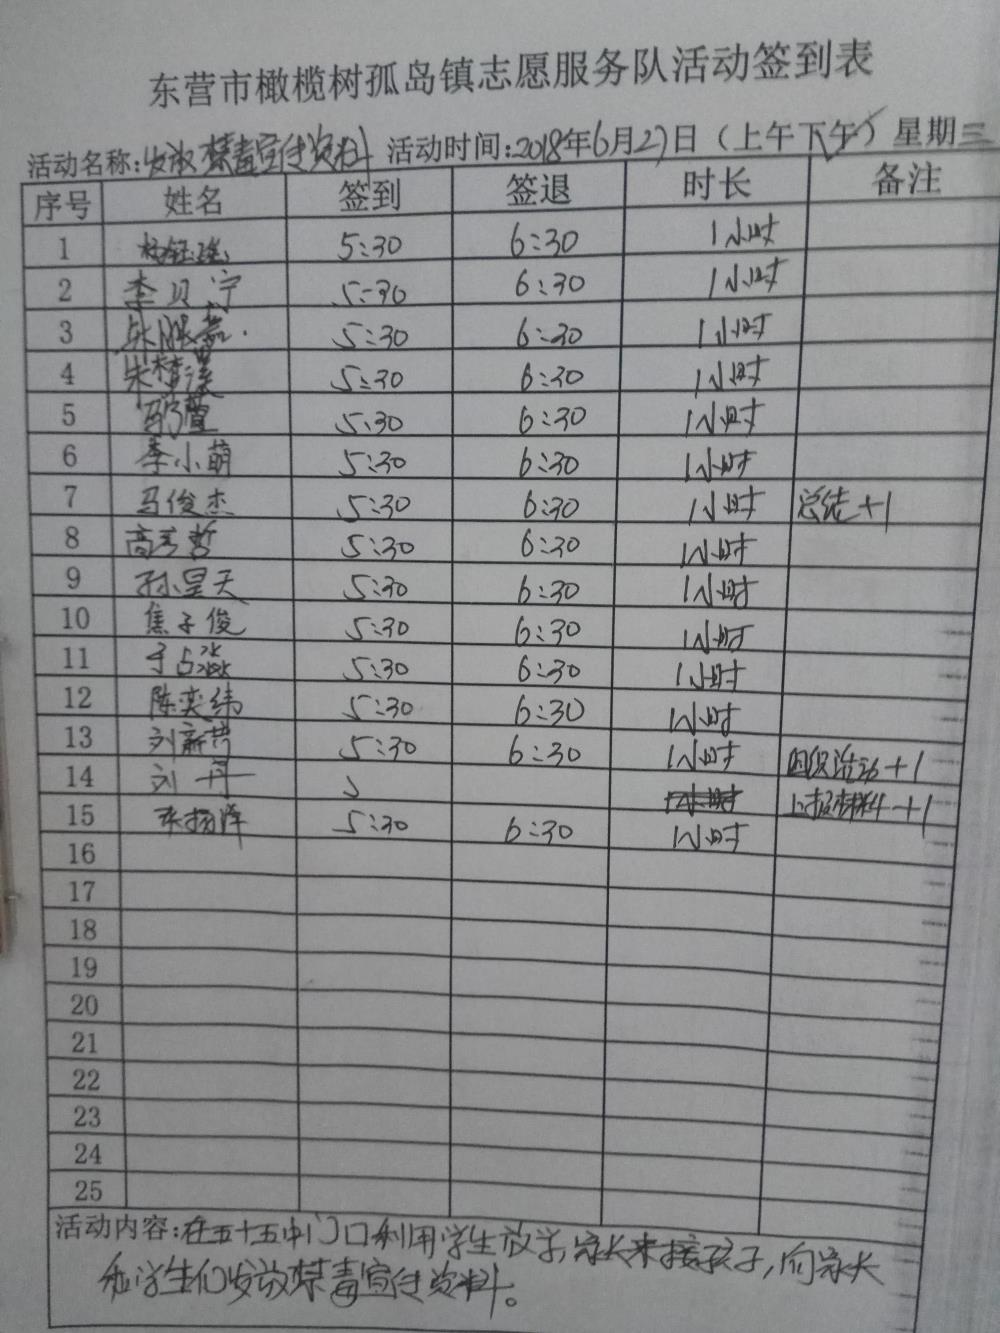 东营市橄榄树孤岛镇志愿服务队活动签到表
活动名称:发放禁毒宣传资料 活动时间:2018年6月27日（上午下午✓）星期三
序号 姓名 签到 签退 时长 备注
1 5:30 6:30 1小时
2 李贝宁 5:30 6:30 1小时
3 5:30 6:30 1小时
4 朱 5:30 6:30 1小时
5 5:30 6:30 1小时
6 李小萌 5:30 6:30 1小时
7 马俊杰 5:30 6:30 1小时 总结+1
8 高 哲 5:30 6:30 1小时
9 孙昊天 5:30 6:30 1小时
10 焦子俊 5:30 6:30 1小时
11 于占 5:30 6:30 1小时
12 陈奕纬 5:30 6:30 1小时
13 刘 5:30 6:30 1小时 组织活动+1
14 刘丹 上报材料+1
15 5:30 6:30 1小时
16
17
18
19
20
21
22
23
24
25
活动内容:在五十五中门口利用学生放学,家长来接孩子,向家长
和学生们发放禁毒宣传资料。